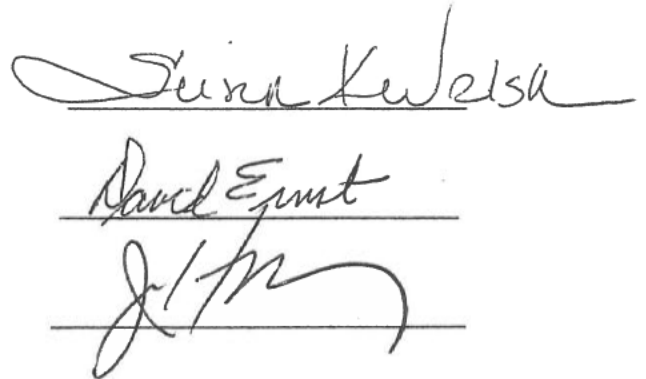 Susan K Welsh
David Ernst